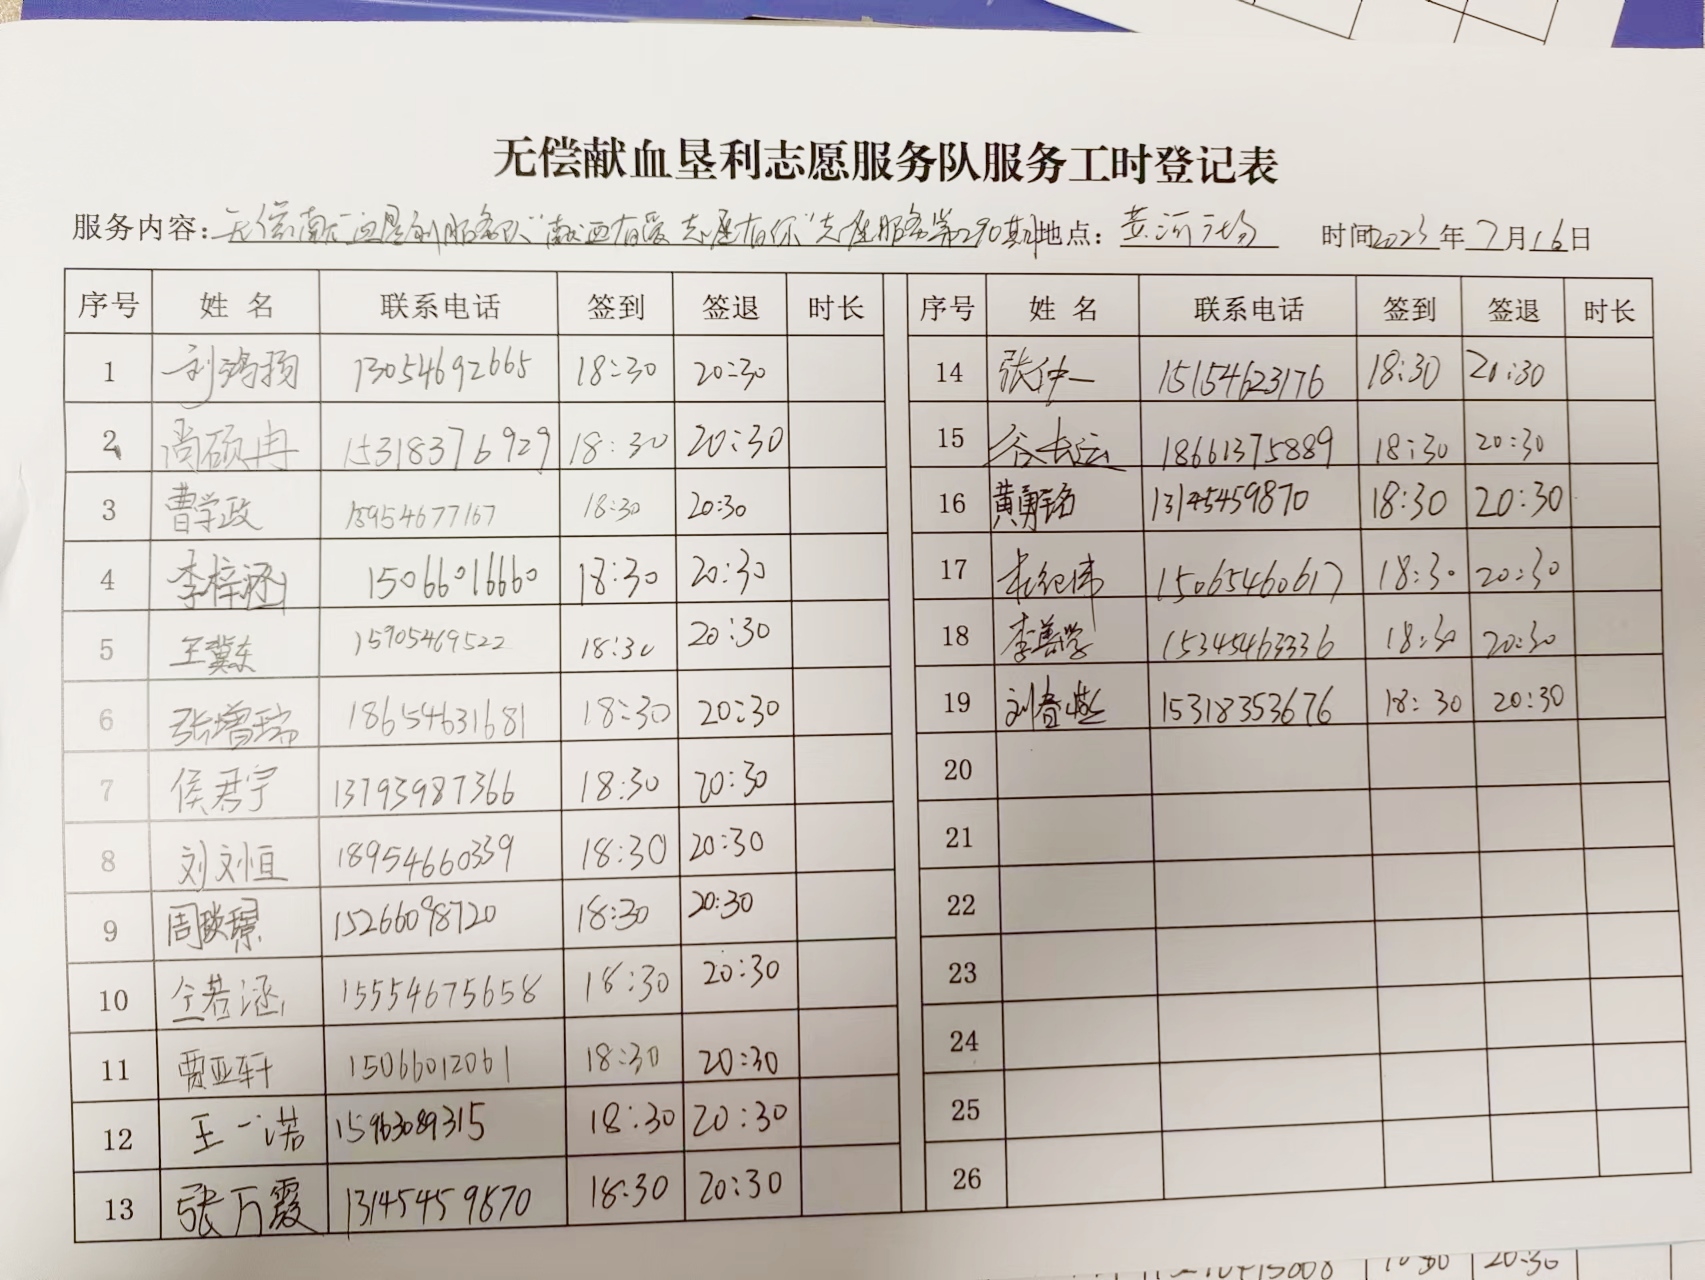 无偿献血垦利志愿服务队服务工时登记表
服务内容：无偿献血垦利服务队“献血有爱 志愿有你”志愿服务第290期 地点：黄河广场 时间2023年7月16日
序号 姓名 联系电话 签到 签退 时长 序号 姓名 联系电话 签到 签退 时长
1 刘鸿扬 13054692665 18:30 20:30 14 张仲一 15154623176 18:30 20:30
2 尚硕冉 15318376929 18:30 20:30 15 谷长运 18661375889 18:30 20:30
3 曹学政 15954677167 18:30 20:30 16 黄勇铭 13145459870 18:30 20:30
4 李梓涵 15066016660 18:30 20:30 17 15065460617 18:30 20:30
5 王冀东 15905469522 18:30 20:30 18 李善学 15345463336 18:30 20:30
6 张增瑞 18654631681 18:30 20:30 19 刘春燕 15318353676 18:30 20:30
7 侯君宇 13793987366 18:30 20:30 20
8 刘文恒 18954660339 18:30 20:30 21
9 15266098720 18:30 20:30 22
10 仝若涵 15554675658 18:30 20:30 23
11 贾亚轩 15066012061 18:30 20:30 24
12 王一诺 15963089315 18:30 20:30 25
13 张万霞 13145459870 18:30 20:30 26
20:30